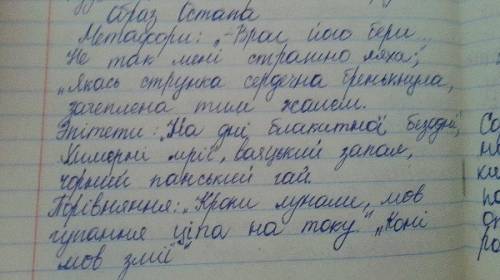 Образ Остапа
Метафори: „-Враг його бери...
Не так мені страшно ляха;"
„Якась струнка сердечна бренькнула,
зачеплена тим жалем.
Епітети: „На дні блакитної безодні,
Химерні мрії, вояцький запал,
чорний панський гай.
Порівняння: „Кроки лунали, мов
гупання ціпа на току" „Коні
мов змії"